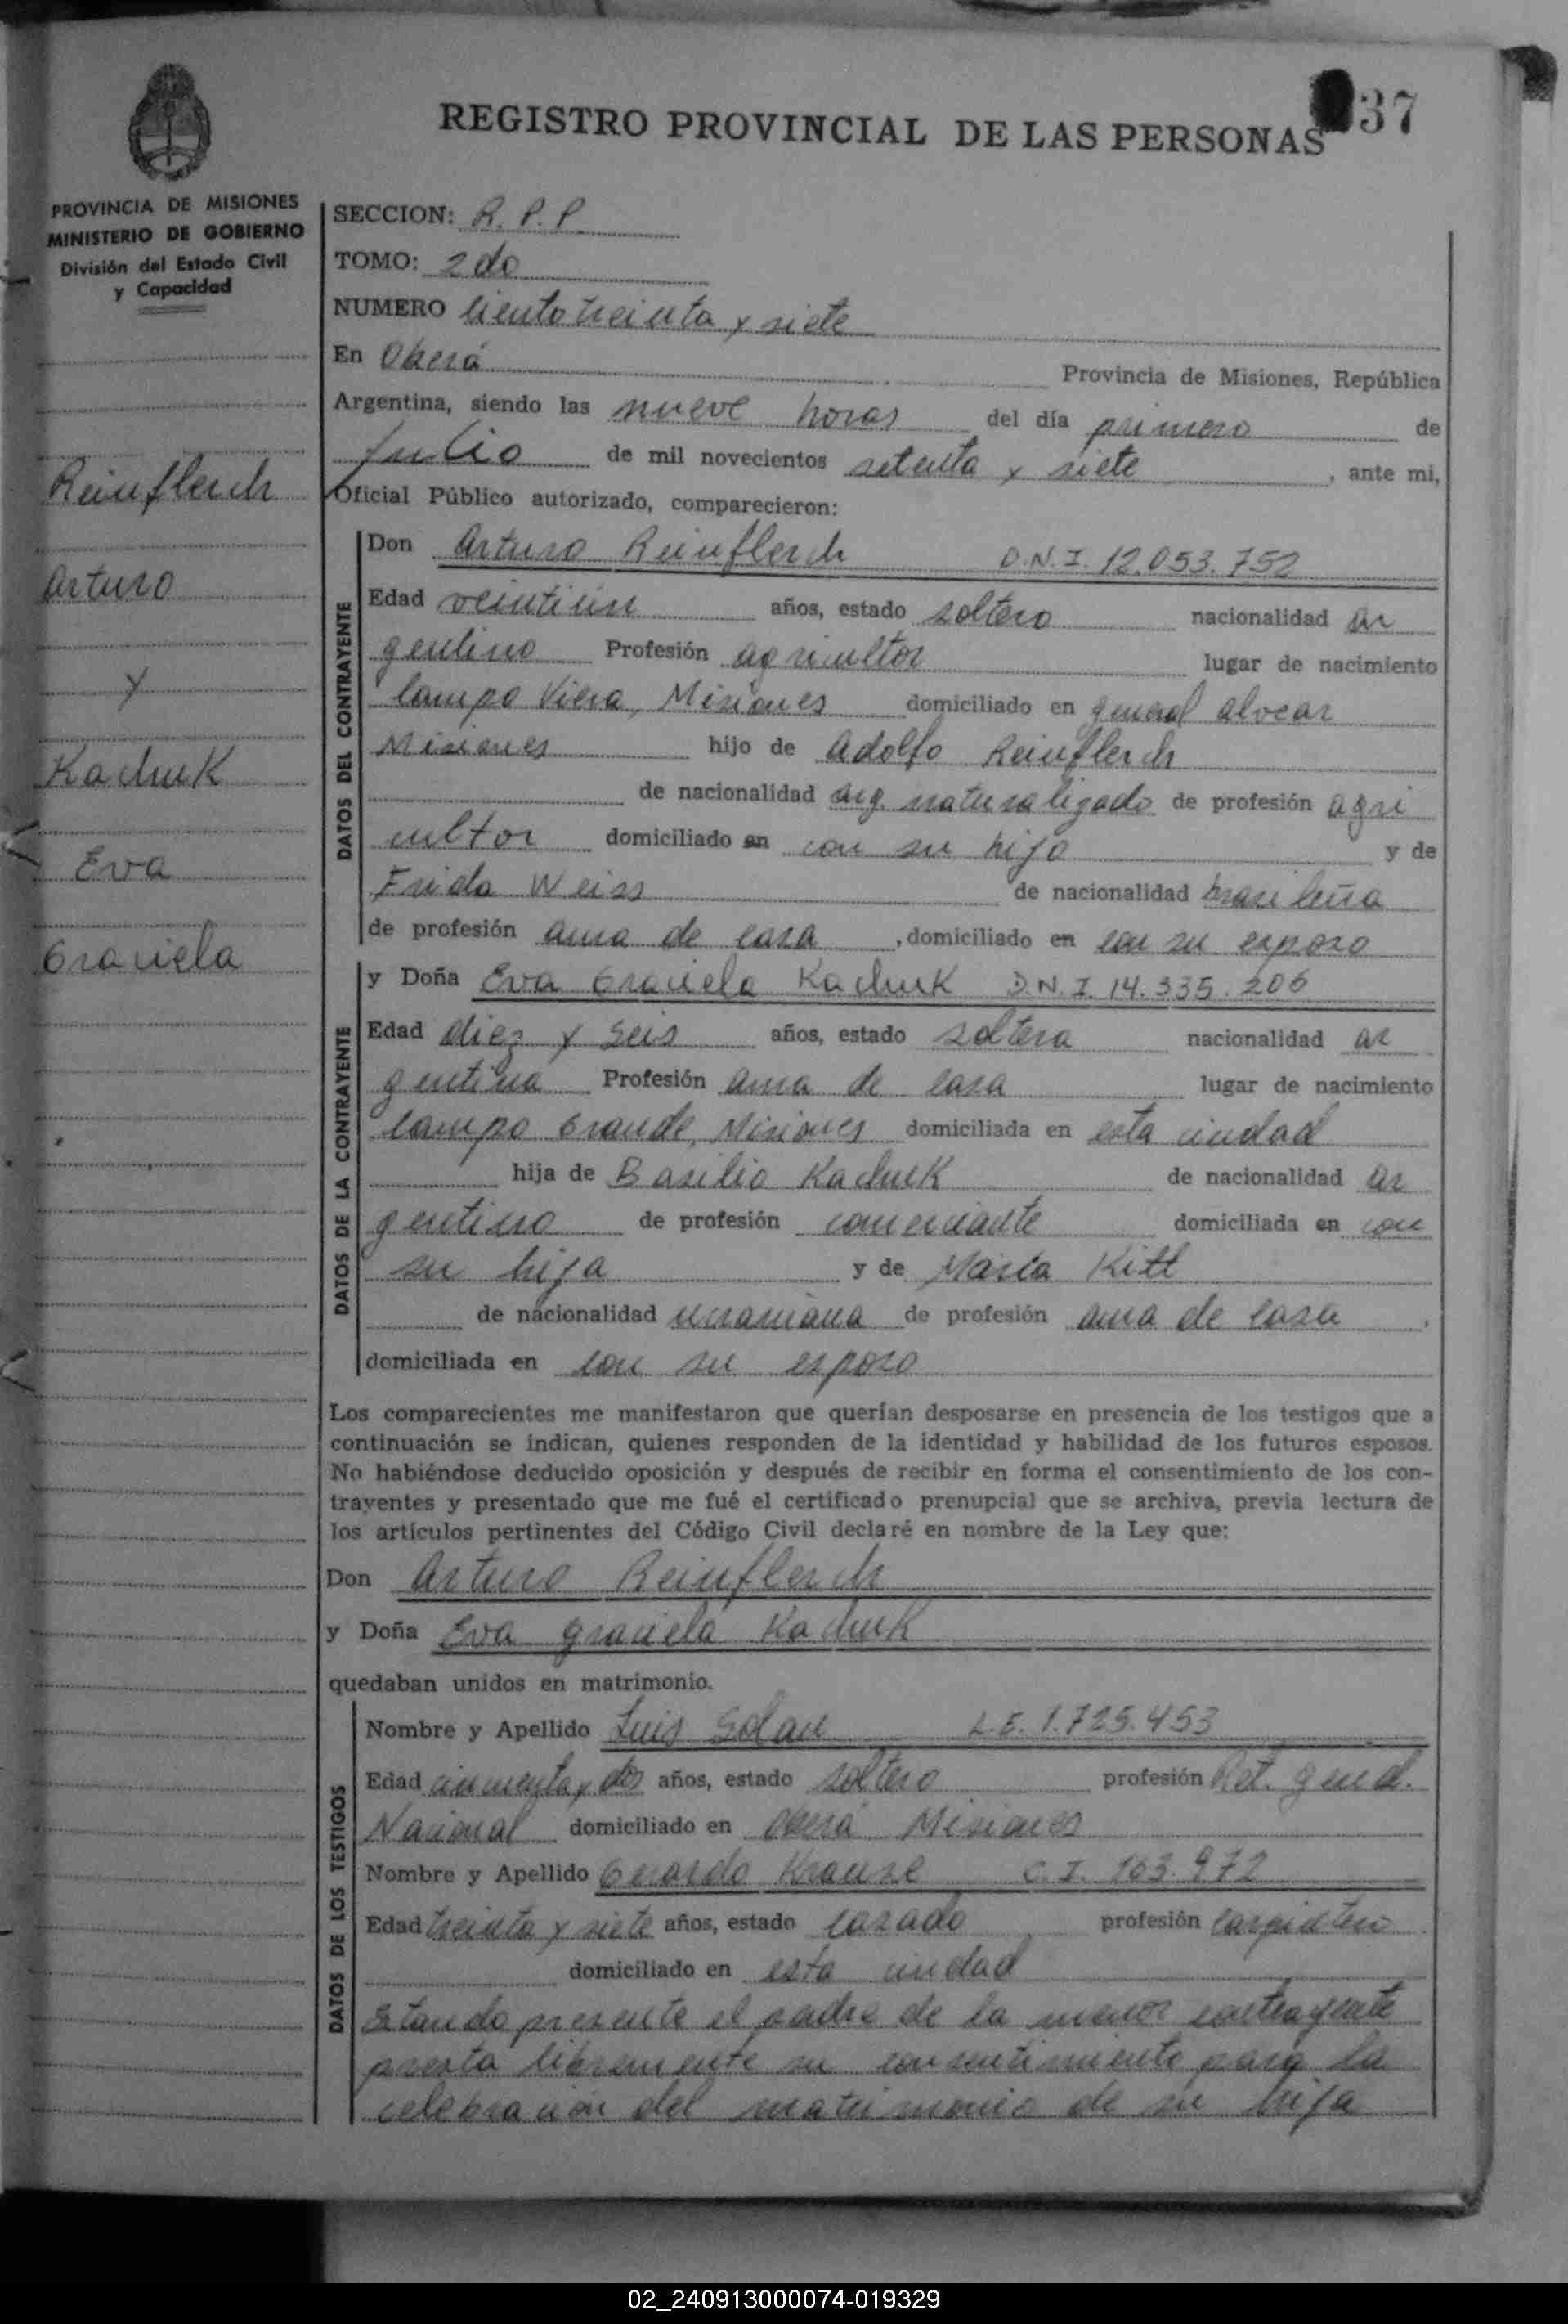 37
REGISTRO PROVINCIAL DE LAS PERSONAS
PROVINCIA DE MISIONES
MINISTERIO DE GOBIERNO
División del Estado Civil
y Capacidad
Reinflerch
Arturo
y
Kachuk
Eva
Graciela
SECCION: R. P. P.
TOMO: 2do
NUMERO Ciento treinta y siete
En Oberá Provincia de Misiones, República
Argentina, siendo las nueve horas del día primero de
Julio de mil novecientos setenta y siete, ante mi,
Oficial Público autorizado, comparecieron:
DATOS DEL CONTRAYENTE
Don Arturo Reinflerch D.N.I. 12.053.752
Edad veintiún años, estado soltero nacionalidad ar
gentino Profesión agricultor lugar de nacimiento
Campo Viera, Misiones domiciliado en general alvear
Misiones hijo de Adolfo Reinflerch
de nacionalidad arg. naturalizado de profesión agri
cultor domiciliado en con su hijo y de
Frida Weiss de nacionalidad brasileña
de profesión ama de casa, domiciliado en con su esposo
DATOS DE LA CONTRAYENTE
y Doña Eva Graciela Kachuk D.N.I. 14.335.206
Edad diez y seis años, estado soltera nacionalidad ar
gentina Profesión ama de casa lugar de nacimiento
Campo Grande, Misiones domiciliada en esta ciudad
hija de Basilio Kachuk de nacionalidad ar
gentino de profesión comerciante domiciliada en con
su hija y de María Kitl
de nacionalidad ucraniana de profesión ama de casa.
domiciliada en con su esposo
Los comparecientes me manifestaron que querían desposarse en presencia de los testigos que a
continuación se indican, quienes responden de la identidad y habilidad de los futuros esposos.
No habiéndose deducido oposición y después de recibir en forma el consentimiento de los con-
trayentes y presentado que me fué el certificado prenupcial que se archiva, previa lectura de
los artículos pertinentes del Código Civil declaré en nombre de la Ley que:
Don Arturo Reinflerch
y Doña Eva graciela Kachuk
quedaban unidos en matrimonio.
DATOS DE LOS TESTIGOS
Nombre y Apellido Luis Solan L.E. 1.725.453
Edad cincuenta y dos años, estado soltero profesión Ret. gend.
Nacional domiciliado en Oberá Misiones
Nombre y Apellido Gerardo Krause C.I. 163.972
Edad treinta y siete años, estado casado profesión carpintero
domiciliado en esta ciudad
Estando presente el padre de la menor contrayente
presta libremente su consentimiento para la
celebración del matrimonio de su hija
02_240913000074-019329